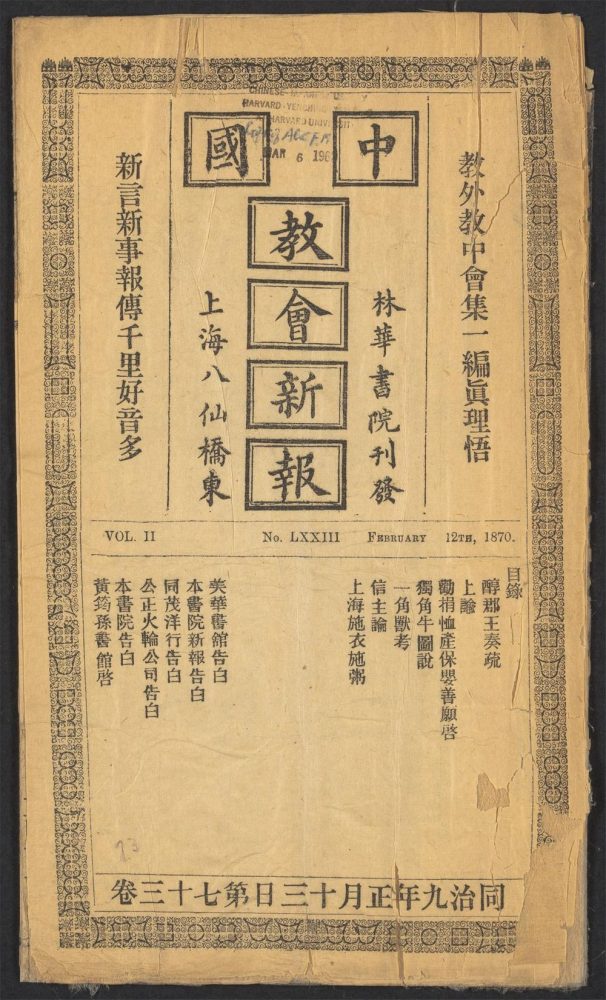 HARVARD UNIV
MAR 6 196
中國
教會新報
教外教中會集一編眞理悟
林華書院刊發
上海八仙橋東
新言新事報傳千里好音多
VOL. II No. LXXIII FEBRUARY 12TH, 1870.
目錄
醇郡王奏疏
上諭
勸捐恤產保嬰善願啓
獨角牛圖說
一角獸考
信主論
上海施衣施粥
美華書館告白
本書院新報告白
同茂洋行告白
公正火輪公司告白
本書院告白
黃筠孫醫館啓
23
同治九年正月十三日第七十三卷